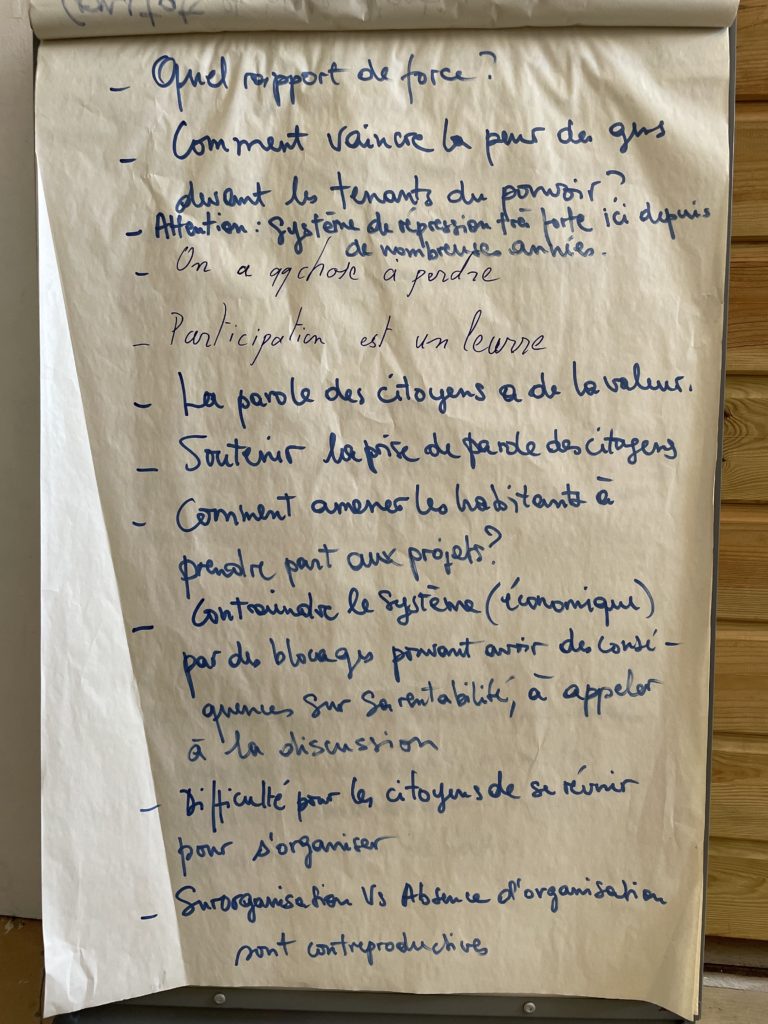 - Quel rapport de force ?
- Comment vaincre la peur des gens
devant les tenants du pouvoir ?
- Attention : Système de répression très forte ici depuis
de nombreuses années.
- On a qqchose à perdre
- Participation est un leurre
- La parole des citoyens a de la valeur.
- Soutenir la prise de parole des citoyens
- Comment amener les habitants à
prendre part aux projets ?
- Contraindre le système (économique)
par des blocages pouvant avoir des consé-
quences sur sa rentabilité, à appeler
à la discussion
- Difficulté pour les citoyens de se réunir
pour s'organiser
- Surorganisation Vs Absence d'organisation
sont contreproductives